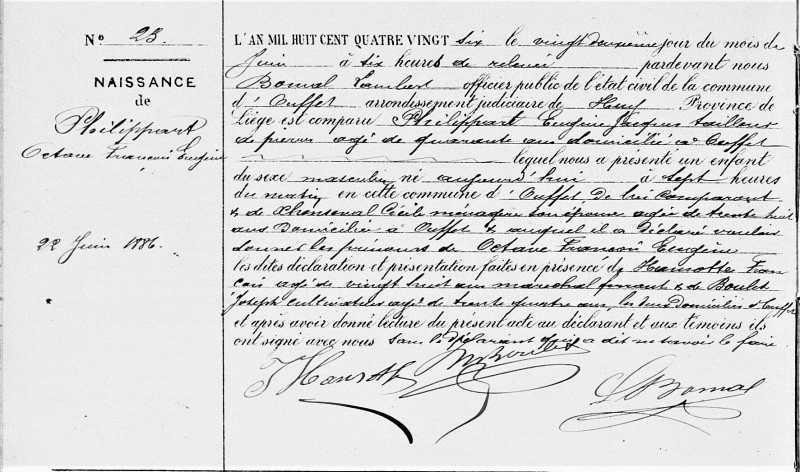 N° 23.
NAISSANCE
de
Philippart
Octave François Eugène
22 Juin 1886.
L'AN MIL HUIT CENT QUATRE VINGT six le vingt deuxième jour du mois de
Juin à six heures de relevée pardevant nous
Bomal Lambert officier public de l'état civil de la commune
d'Ouffet arondissement judiciaire de Huy Province de
Liège est comparu Philippart Eugène Jacques tailleur
de pierres agé de quarante ans domicilié à Ouffet
lequel nous a présenté un enfant
du sexe masculin né aujourd'hui à sept heures
du matin en cette commune d'Ouffet de lui comparant
& de Cécile ménagère son épouse agée de trente huit
ans domiciliée à Ouffet & auquel il a déclaré vouloir
donner les prénoms de Octave François Eugène
les dites déclaration et présentation faites en présence de Hamotte Fran
çois agé de vingt huit ans maréchal ferrant & de Boulet
Joseph cultivateur agé de trente quatre ans, les deux domiciliés à Ouffet
et après avoir donné lecture du présent acte au déclarant et aux témoins ils
ont signé avec nous sauf le déclarant qui a dit ne savoir le faire.
Boulet
L Bomal